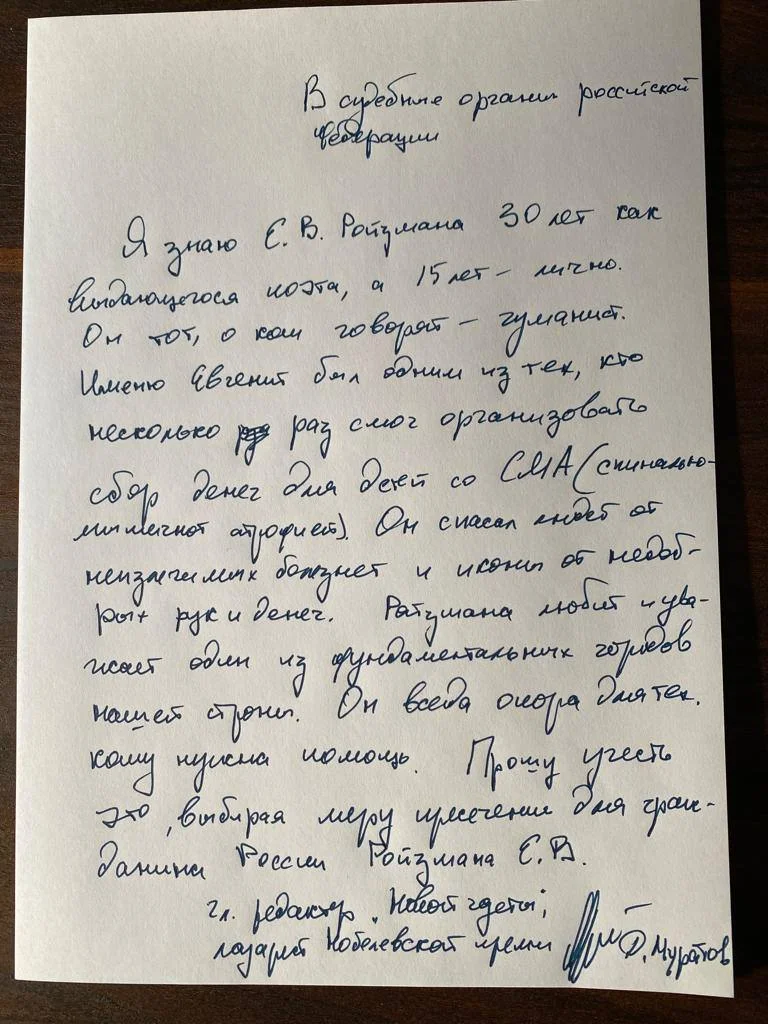 В судебные органы российской
федерации
Я знаю Е. В. Ройзмана 30 лет как
выдающегося поэта, а 15 лет – лично.
Он тот, о ком говорят – гуманист.
Именно Евгений был одним из тех, кто
несколько раз смог организовать
сбор денег для детей со СМА (спинально-
мышечной атрофией). Он спасал людей от
неизлечимых болезней и иконы от недоб-
рых рук и денег. Ройзмана любит и ува-
жает один из фундаментальных городов
нашей страны. Он всегда опора для тех,
кому нужна помощь. Прошу учесть
это, выбирая меру пресечения для граж-
данина России Ройзмана Е. В.
гл. редактор „Новой газеты",
лауреат Нобелевской премии Д. Муратов